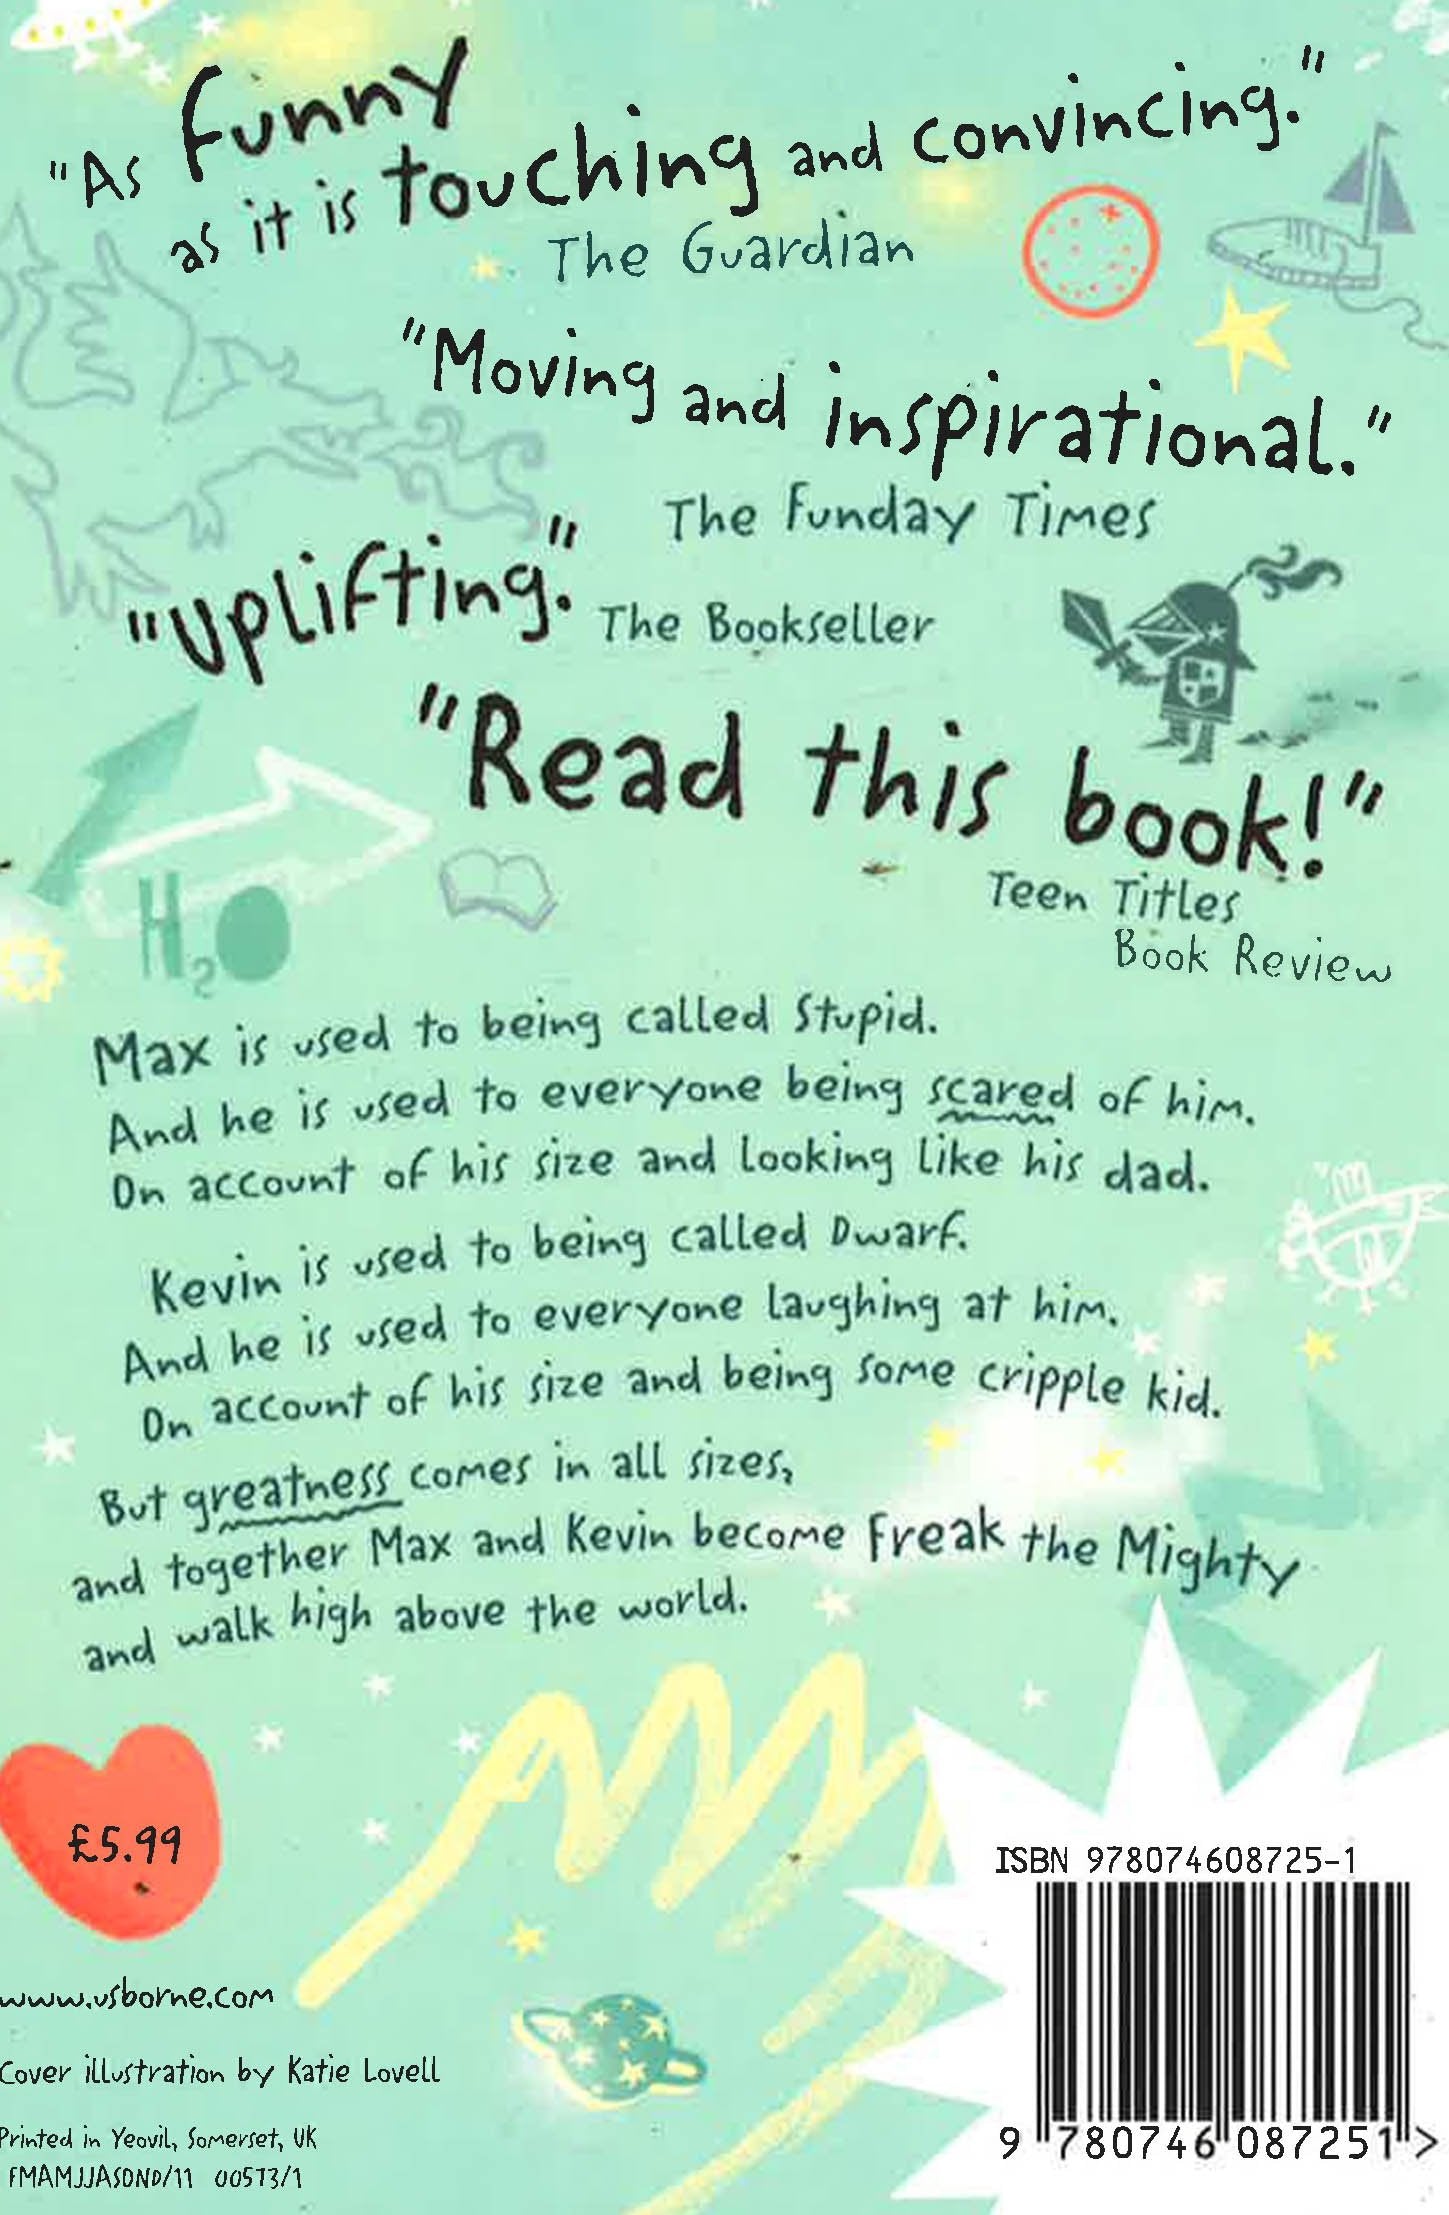 "As funny
as it is touching and convincing."
The Guardian
"Moving and inspirational."
The Funday Times
"Uplifting." The Bookseller
"Read this book!"
Teen Titles
Book Review
H2O
Max is used to being called Stupid.
And he is used to everyone being scared of him.
On account of his size and looking like his dad.
Kevin is used to being called Dwarf.
And he is used to everyone laughing at him.
On account of his size and being some cripple kid.
But greatness comes in all sizes,
and together Max and Kevin become Freak the Mighty
and walk high above the world.
£5.99
ISBN 978074608725-1
9 780746 087251 >
www.usborne.com
Cover illustration by Katie Lovell
Printed in Yeovil, Somerset, UK
FMAMJJASOND/11 00573/1